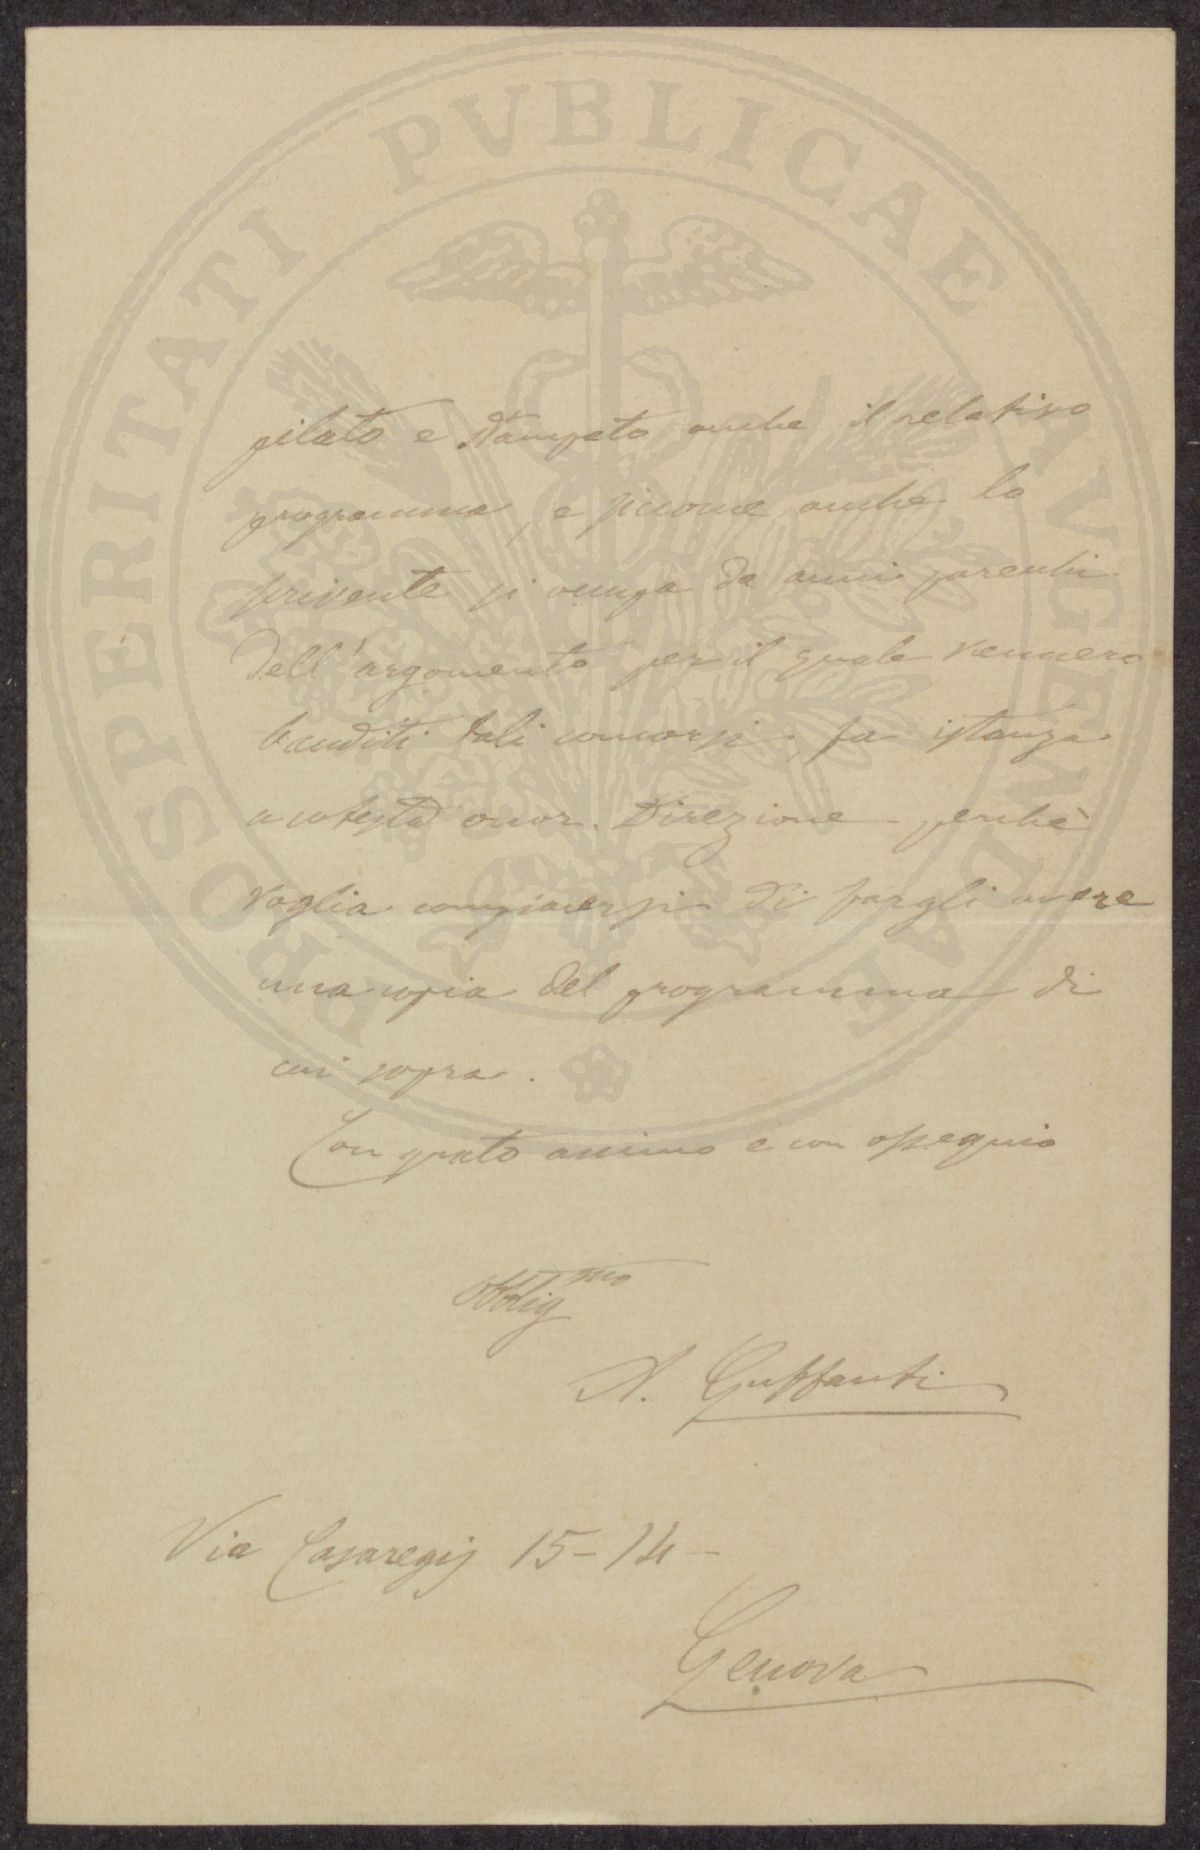 PROSPERITATI PVBLICAE AVGENDAE
pilato e stampato anche il relativo
programma, e siccome anche lo
scrivente si occupa da anni parecchi
dell'argomento per il quale vennero
banditi tali concorsi, fa istanza
a cotesta onor. Direzione perchè
voglia compiacersi di fargli avere
una copia del programma di
cui sopra.
Con grato animo e con ossequio
Obblig.mo
A. Guffanti
Via Casaregis 15-14-
Genova